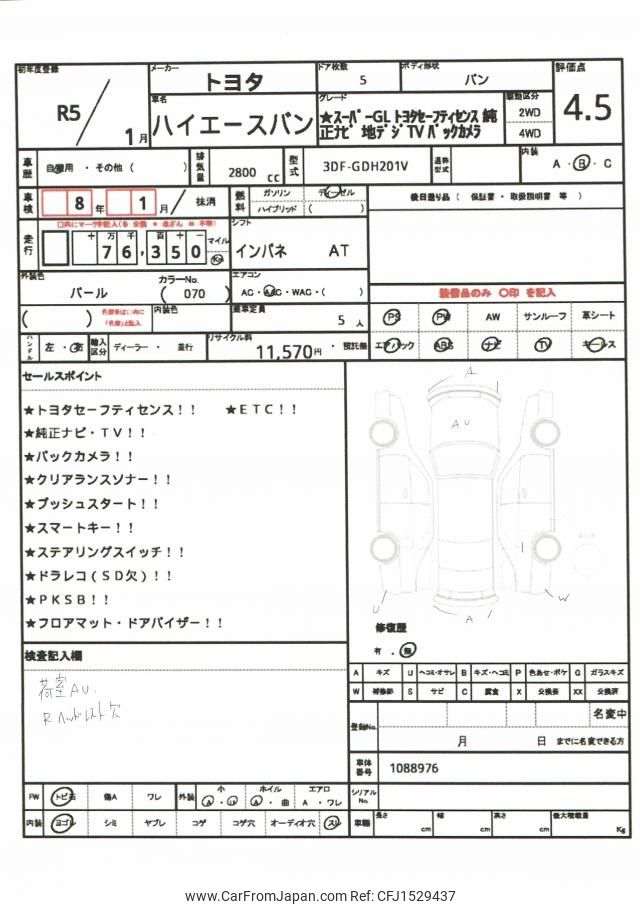 初年度登録
R5
1 月
メーカー
トヨタ
ドア枚数
5
ボディ形状
バン
車名
ハイエースバン
グレード
★スーパーGL トヨタセーフティセンス 純
正ナビ 地デジTV バックカメラ
駆動区分
2WD
4WD
評価点
4.5
車歴
自家用 ・ その他 ( )
排気量
2800 cc
型式
3DF-GDH201V
通称型式
内装
A ・ B ・ C
車検
8 年 1 月 / 抹消
燃料
ガソリン
ディーゼル
ハイブリッド ( )
後日送り品 ( 保証書 ・ 取扱説明書 等 )
走行
十 万 千 百 十 一
76,350
マイル
Km
シフト
インパネ AT
外装色
パール
カラーNo.
( 070 )
エアコン
AC・AAC・WAC・( )
装備品のみ 〇印 を記入
( )
内装色
乗車定員
5 人
PS
PW
AW
サンルーフ
革シート
ハンドル
左 ・ 右
輸入区分
ディーラー ・ 並行
リサイクル料
11,570円 ・ 預託無
エアバック
ABS
ナビ
TV
キーレス
セールスポイント
★トヨタセーフティセンス!! ★ETC!!
★純正ナビ・TV!!
★バックカメラ!!
★クリアランスソナー!!
★プッシュスタート!!
★スマートキー!!
★ステアリングスイッチ!!
★ドラレコ(SD欠)!!
★PKSB!!
★フロアマット・ドアバイザー!!
A
AU
U
W
A
修復歴
有 ・ 無
検査記入欄
荷室AU.
Rヘッドレスト欠
A キズ U ヘコミ・オサレ B キズ・ヘコミ P 色あせ・ボケ G ガラスキズ
W 補修跡 S サビ C 腐食 X 交換要 XX 交換済
登録No.
名変中
月 日 までに名変できる方
車体番号
1088976
シリアルNo.
FW トビ石 傷A ワレ
外装 小 A ・ U ホイル A ・ 曲 エアロ A ・ ワレ
内装 ヨゴレ シミ ヤブレ コゲ コゲ穴 オーディオ穴 スレ
車輛
長さ cm
幅 cm
高さ cm
最大積載量 Kg
www.CarFromJapan.com Ref: CFJ1529437